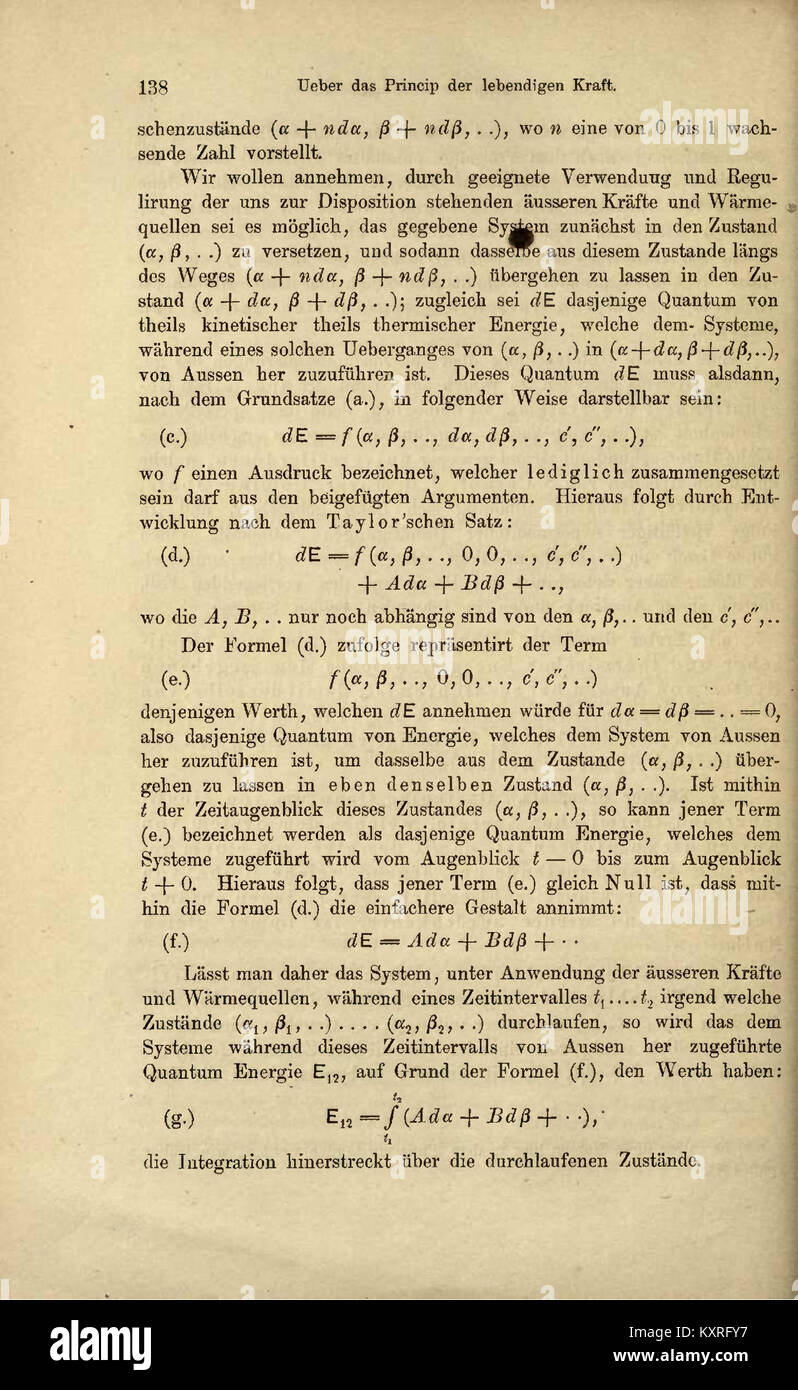 138 Ueber das Princip der lebendigen Kraft.
schenzustände (α + ndα, β + ndβ, . .), wo n eine von 0 bis 1 wach-
sende Zahl vorstellt.
Wir wollen annehmen, durch geeignete Verwendung und Regu-
lirung der uns zur Disposition stehenden äusseren Kräfte und Wärme-
quellen sei es möglich, das gegebene System zunächst in den Zustand
(α, β, . .) zu versetzen, und sodann dasselbe aus diesem Zustande längs
des Weges (α + ndα, β + ndβ, . .) übergehen zu lassen in den Zu-
stand (α + dα, β + dβ, . .); zugleich sei dE dasjenige Quantum von
theils kinetischer theils thermischer Energie, welche dem- Systeme,
während eines solchen Ueberganges von (α, β, . .) in (α + dα, β + dβ, . .),
von Aussen her zuzuführen ist. Dieses Quantum dE muss alsdann,
nach dem Grundsatze (a.), in folgender Weise darstellbar sein:
(c.) dE = f(α, β, . ., dα, dβ, . ., c′, c″, . .),
wo f einen Ausdruck bezeichnet, welcher lediglich zusammengesetzt
sein darf aus den beigefügten Argumenten. Hieraus folgt durch Ent-
wicklung nach dem Taylor'schen Satz:
(d.) dE = f(α, β, . ., 0, 0, . ., c′, c″, . .)
+ Adα + Bdβ + . .,
wo die A, B, . . nur noch abhängig sind von den α, β, . . und den c′, c″, . .
Der Formel (d.) zufolge repräsentirt der Term
(e.) f(α, β, . ., 0, 0, . ., c′, c″, . .)
denjenigen Werth, welchen dE annehmen würde für dα = dβ = . . = 0,
also dasjenige Quantum von Energie, welches dem System von Aussen
her zuzuführen ist, um dasselbe aus dem Zustande (α, β, . .) über-
gehen zu lassen in eben denselben Zustand (α, β, . .). Ist mithin
t der Zeitaugenblick dieses Zustandes (α, β, . .), so kann jener Term
(e.) bezeichnet werden als dasjenige Quantum Energie, welches dem
Systeme zugeführt wird vom Augenblick t — 0 bis zum Augenblick
t + 0. Hieraus folgt, dass jener Term (e.) gleich Null ist, dass mit-
hin die Formel (d.) die einfachere Gestalt annimmt:
(f.) dE = Adα + Bdβ + · ·
Lässt man daher das System, unter Anwendung der äusseren Kräfte
und Wärmequellen, während eines Zeitintervalles t₁ . . . . t₂ irgend welche
Zustände (α₁, β₁, . .) . . . . (α₂, β₂, . .) durchlaufen, so wird das dem
Systeme während dieses Zeitintervalls von Aussen her zugeführte
Quantum Energie E₁₂, auf Grund der Formel (f.), den Werth haben:
(g.) E₁₂ = ∫_{t₁}^{t₂} (Adα + Bdβ + · ·),
die Integration hinerstreckt über die durchlaufenen Zustände.
alamy
Image ID: KXRFY7
www.alamy.com